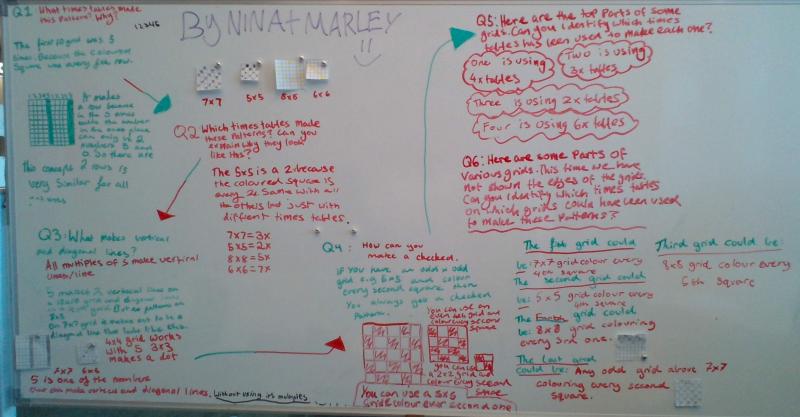 By NINA + MARLEY
Q1: What times tables make
this pattern? Why?
12345
The first 10 grid was 5
times. Because the coloured
square was every 5th row.
It makes
a row because
in the 5 times
table the number
in the ones place
can only be 2
numbers 5 and
0. So there are
2 rows
This concept is
very similar for all
7x7 5x5 8x8 6x6
Q2 Which times tables made
these patterns? Can you
explain why they look
like this?
The 5x5 is a 2. because
the coloured square is
every 2. Same with all
the others but just with
different times tables.
7x7=3x
5x5=2x
8x8=5x
6x6=7x
Q3: What makes vertical
and diagonal lines?
All multiples of 5 make vertical
lines/line
5 makes 2 vertical lines on
diagonal line that looks like this.
4x4 grid works
with 5 3x3
makes a dot
7x7 6x6
5 is one of the numbers
that can make vertical and diagonal lines, without using its multiples
Q4: How can you
make a checked.
IF You have an odd x odd
grid e.g 5x5 and colour
every second square then
You always get a checked
Pattern.
You can use an
even x odd grid and
colour every second
square
you can use
a 2x2 grid and
colour every second
square
You can use a 5x5
grid & colour every second one
Q5: Here are the top parts of some
grids. Can you identify which times
tables has been used to make each one?
One is using
4x tables
Two is using
3x tables
Three is using 2x tables
Four is using 6x tables
Q6: Here are some parts of
various grids. This time we have
not shown the edges of the grids.
Can you identify which times tables
on which grids could have been used
to make these patterns?
The first grid could
be: 7x7 grid colour every
4th square
The second grid could
be: 5x5 grid colour every
4th square
The Fourth grid could
be: 8x8 grid colouring
every 3rd one.
The last grid
could be: Any odd grid above 7x7
colouring every second
square.
Third grid could be:
8x8 grid colour every
6th square